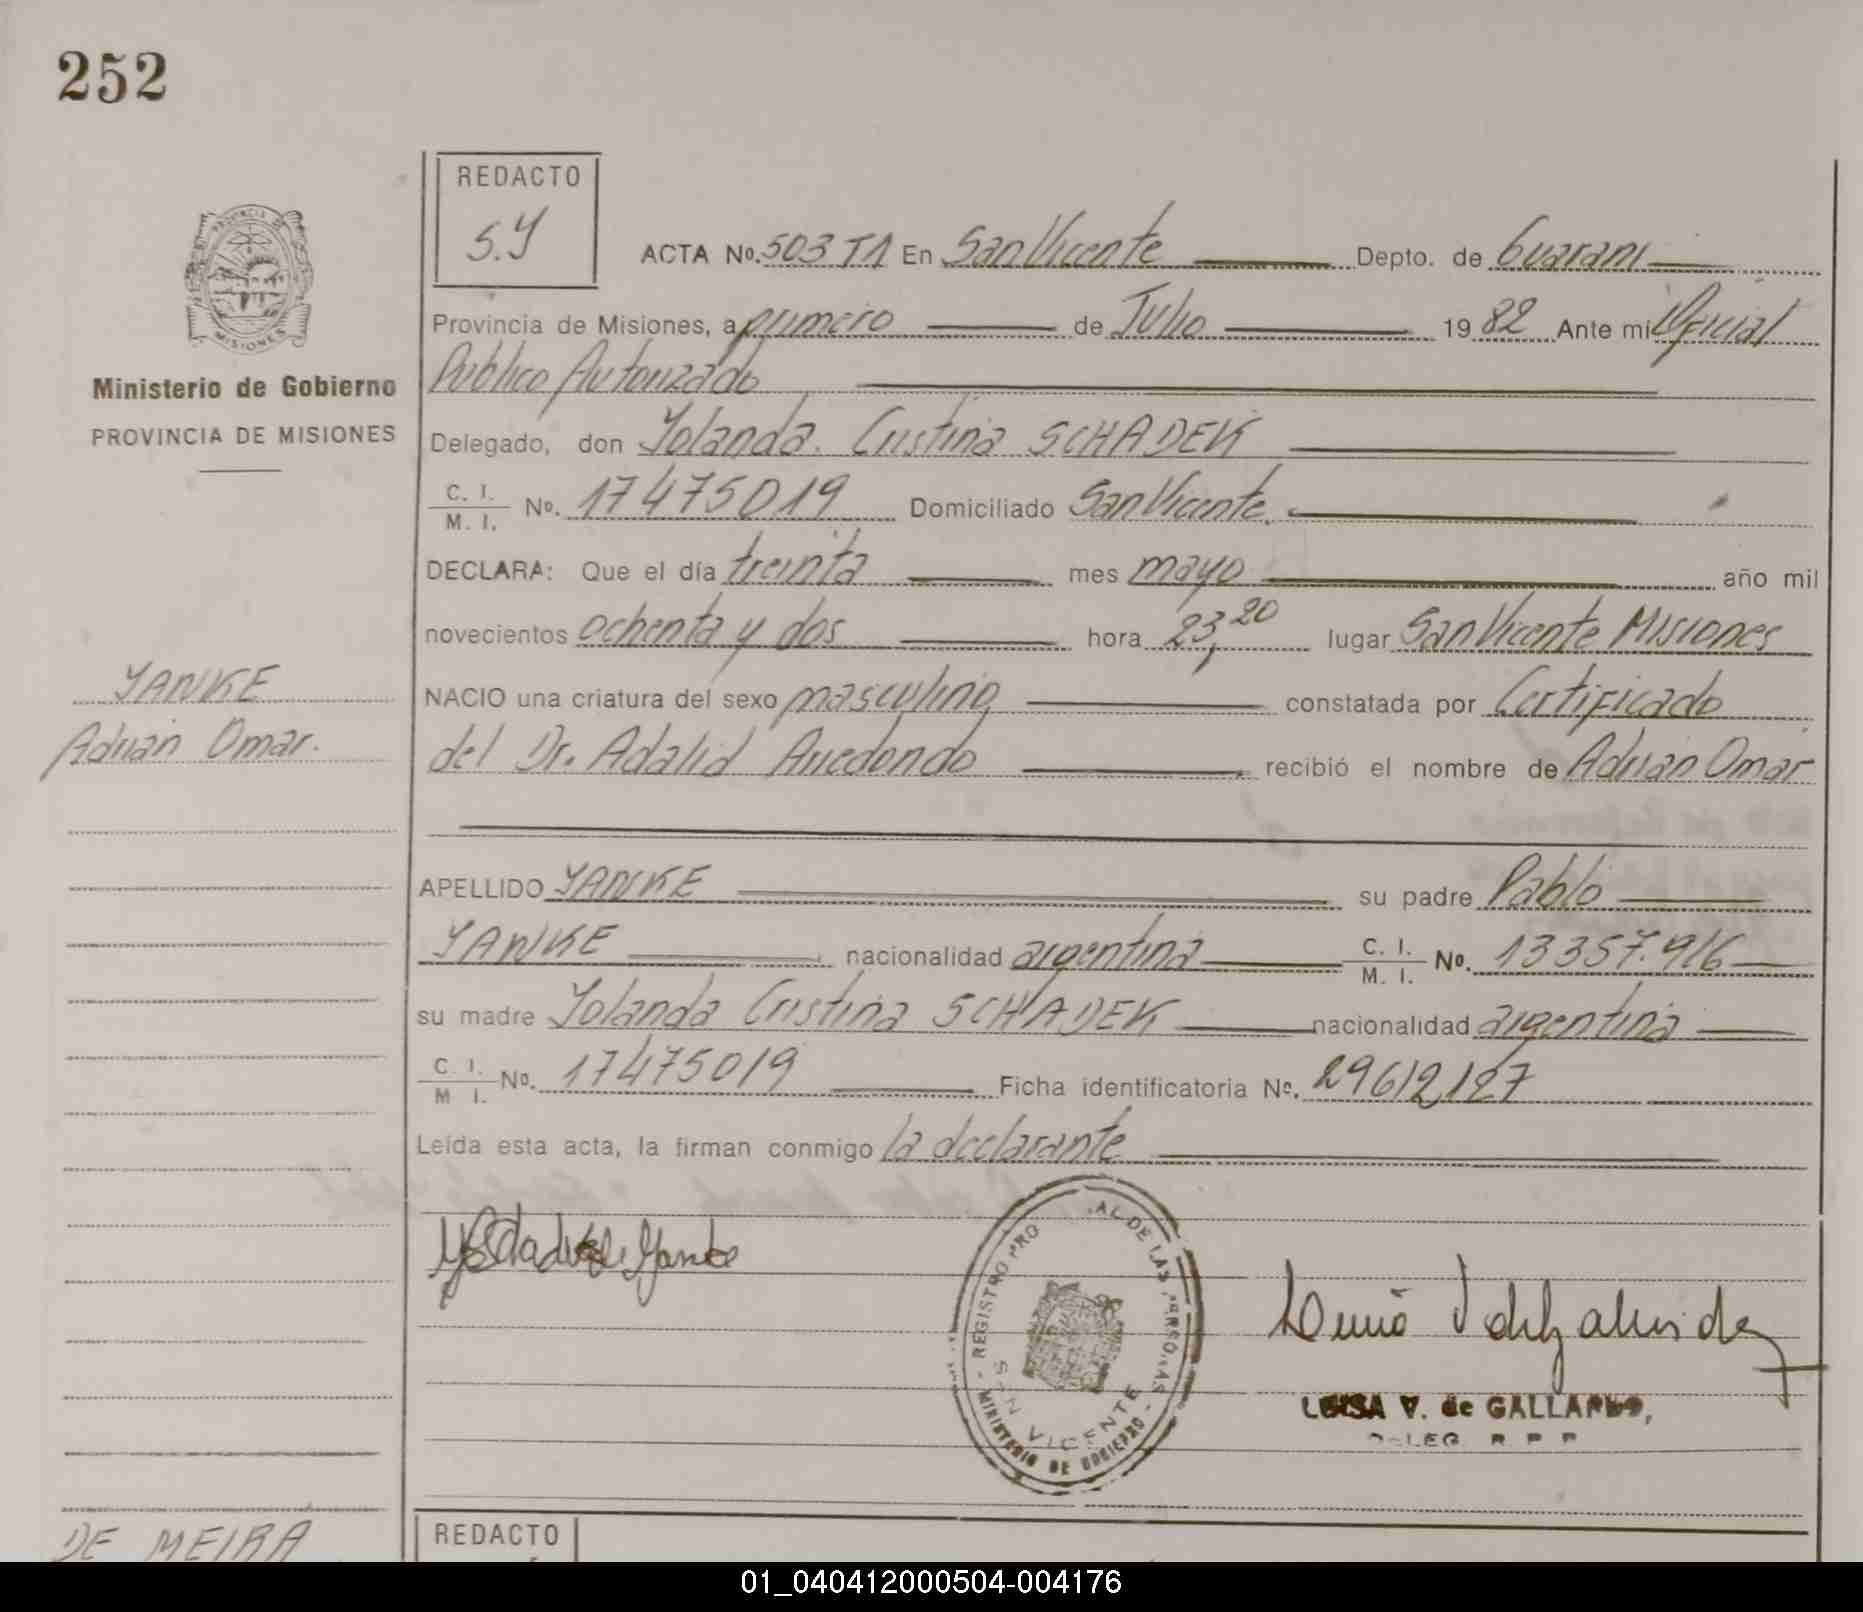 252
REDACTO
S.Y
ACTA No. 503 T1 En San Vicente Depto. de Guarani
PROVINCIA DE
MISIONES
Provincia de Misiones, a primero de Julio 1982 Ante mi Oficial
Ministerio de Gobierno
Publico Autorizado
PROVINCIA DE MISIONES
Delegado, don Yolanda. Cristina SCHADEK
C. I.
M. I. No. 17475019 Domiciliado San Vicente.
DECLARA: Que el día treinta mes mayo año mil
novecientos ochenta y dos hora 23,20 lugar San Vicente Misiones
YANKE
NACIO una criatura del sexo masculino constatada por Certificado
Adrian Omar.
del Dr. Adalid Arredondo recibió el nombre de Adrian Omar
APELLIDO YANKE su padre Pablo
YANKE nacionalidad argentina C. I. M. I. No. 13357.916
su madre Yolanda Cristina SCHADEK nacionalidad argentina
C. I. M I. No. 17475019 Ficha identificatoria No. 29612127
Leída esta acta, la firman conmigo la declarante
REGISTRO PRO AL DE LAS PERSONAS
SAN VICENTE
- MINISTERIO DE GOBIERNO -
LUISA V. de GALLARDO,
DELEG. R. P. P.
DE MEIRA
REDACTO
01_040412000504-004176